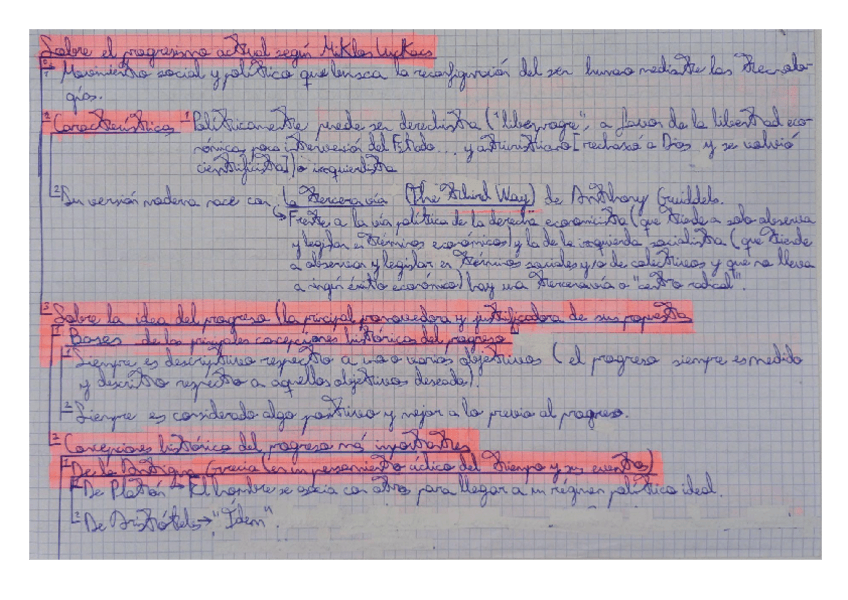 Sobre el progresismo actual según Miklos Lukacs
1- Movimiento social y político que busca la reconfiguración del ser humano mediante las tecnolo-
gías.
2- Características 1- Políticamente puede ser derechista ("liberprogre", a favor de la libertad eco-
nómica, poca intervención del Estado... y anticristiano [rechazó a Dios y se volvió
cientificista]) o izquierdista
2- Su versión moderna nace con la tercera vía (The Third Way) de Anthony Guiddels.
↳ Frente a la vía política de la derecha economicista (que tiende a solo observar
y legislar en términos económicos y la de la izquierda socialista (que tiende
a observar y legislar en términos sociales y/o de colectivos y que no lleva
a ningún éxito económico) hay una tercera vía o "centro radical".
3- Sobre la idea del progreso (la principal promovedora y justificadora de sus propuestas
1- Bases de las principales concepciones históricas del progreso
1- Siempre es descriptivo respecto a uno o varios objetivos (el progreso siempre es medido
y descrito respecto a aquellos objetivos deseados).
2- Siempre es considerado algo positivo y mejor a lo previo al progreso.
2- Concepciones históricas del progreso más importantes
1- De la Antigua Grecia (es un pensamiento cíclico del tiempo y sus eventos)
1- De Platón → El hombre se asocia con otros para llegar a un régimen político ideal.
2- De Aristóteles → "Idem".